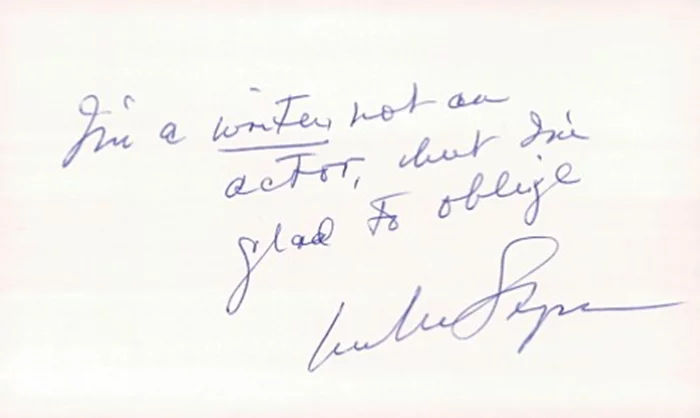 I'm a writer, not an
actor, but I'm
glad to oblige